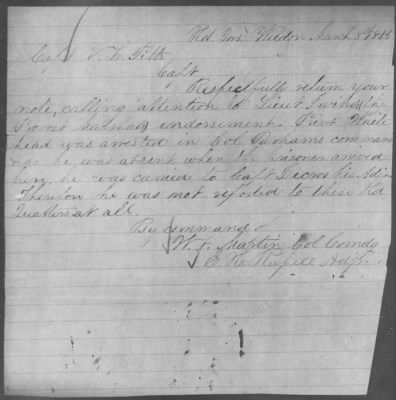 Hd Qrs Weldon March 8th 1865
Capt
Capt
Respectfully return your
note, calling attention to Lieut
Provost Marshals endorsement. Privt White
head was arrested in Col Parhams command
& as he was absent when the prisoner arrived
here he was carried to Capt his Adj't
Therefore he was not reported to these Hd
Quarters at all.
By command of
W. F. Martin Col Comdg
Adjt